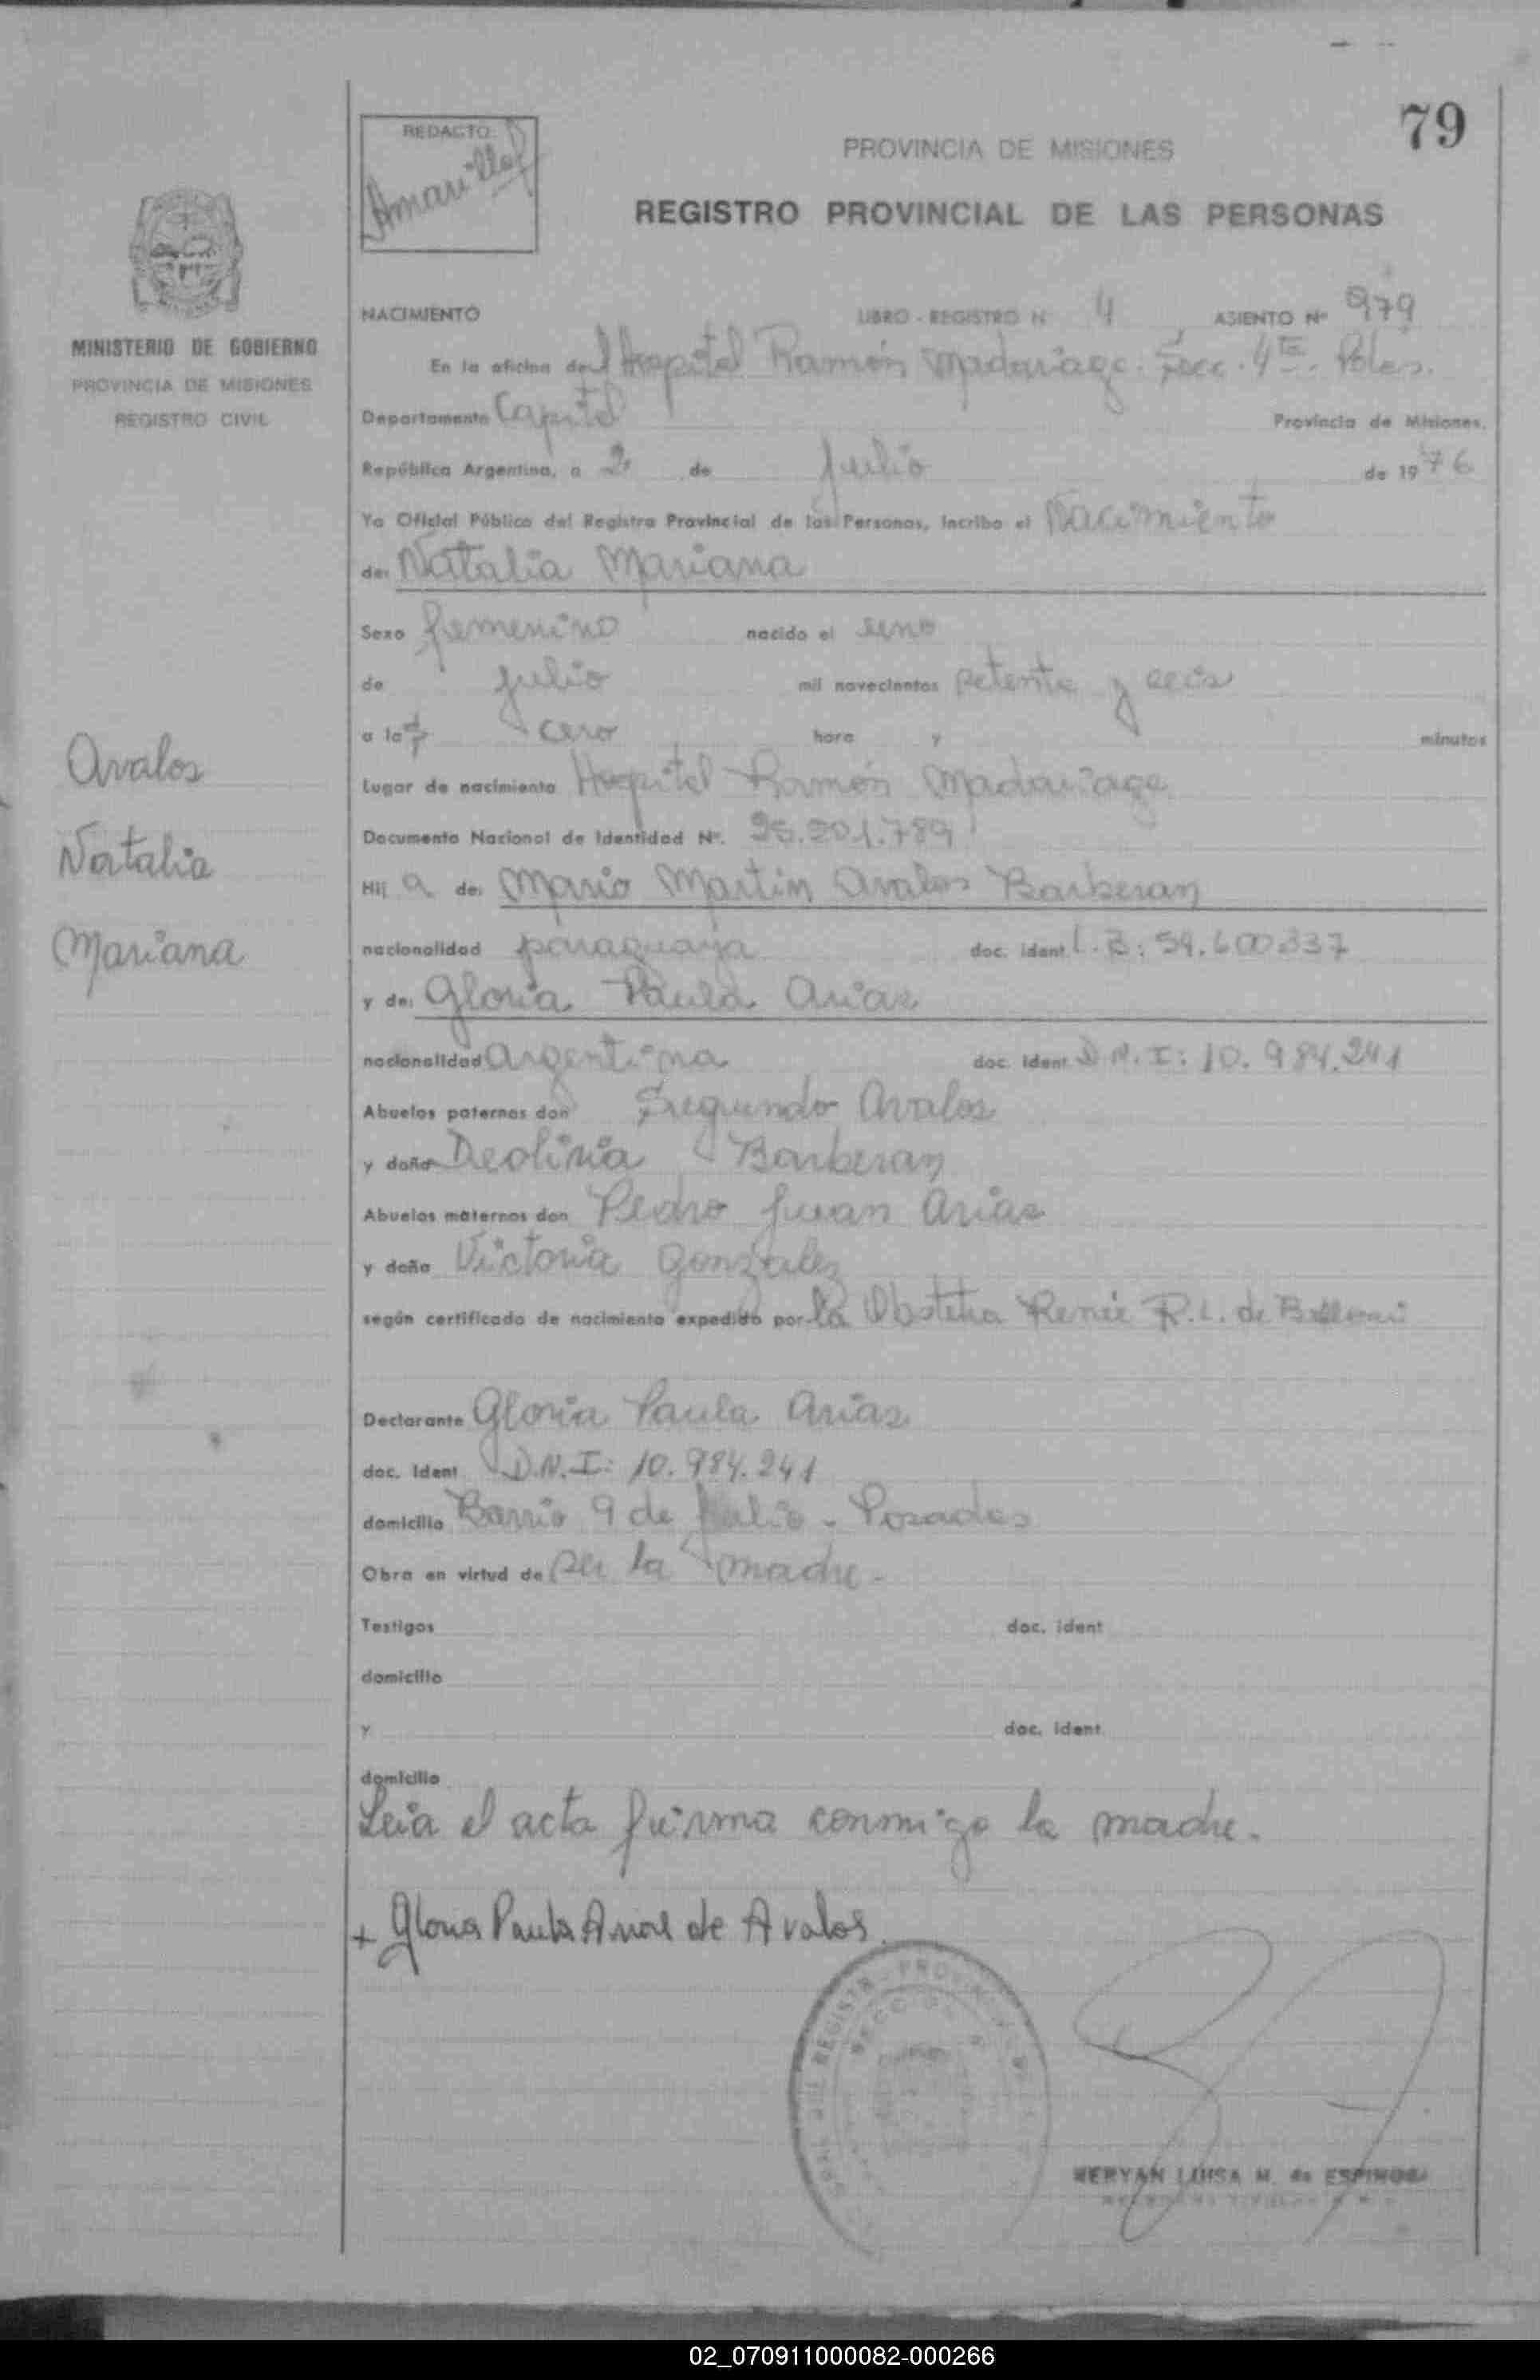 79
REDACTO
Amarilla
PROVINCIA DE MISIONES
REGISTRO PROVINCIAL DE LAS PERSONAS
MINISTERIO DE GOBIERNO
PROVINCIA DE MISIONES
REGISTRO CIVIL
Avalos
Natalia
Mariana
NACIMIENTO LIBRO - REGISTRO Nº 4 ASIENTO Nº 979
En la oficina del Hospital Ramón Madariaga. Secc. 4ta. Pdas.
Departamento Capital Provincia de Misiones,
República Argentina, a 2 de Julio de 1976
Yo Oficial Público del Registro Provincial de las Personas, incribo el Nacimiento
de: Natalia Mariana
Sexo femenino nacido el uno
de julio mil novecientos setenta y seis
a las cero hora y minutos
Lugar de nacimiento Hospital Ramón Madariaga
Documento Nacional de Identidad Nº. 25.201.789
Hij a de: Mario Martin Avalos Barberan
nacionalidad paraguaya doc. ident 59.600.337
y de: Gloria Paula Arias
nacionalidad argentina doc. ident D.N.I: 10.984.241
Abuelos paternos don Segundo Avalos
y doña Deolinia Barberan
Abuelos maternos don Pedro Juan Arias
y doña Victoria Gonzalez
según certificado de nacimiento expedido por la Obstetra Renée R.L. de
Declarante Gloria Paula Arias
doc. ident D.N.I: 10.984.241
domicilio Barrio 9 de Julio - Posadas
Obra en virtud de ser la madre.
Testigos doc. ident
domicilio
y doc. ident
domicilio
Leia el acta fuirma conmigo la madre.
+ Gloria Paula Arias de Avalos
LUISA M. de ESPINOSA
02_070911000082-000266